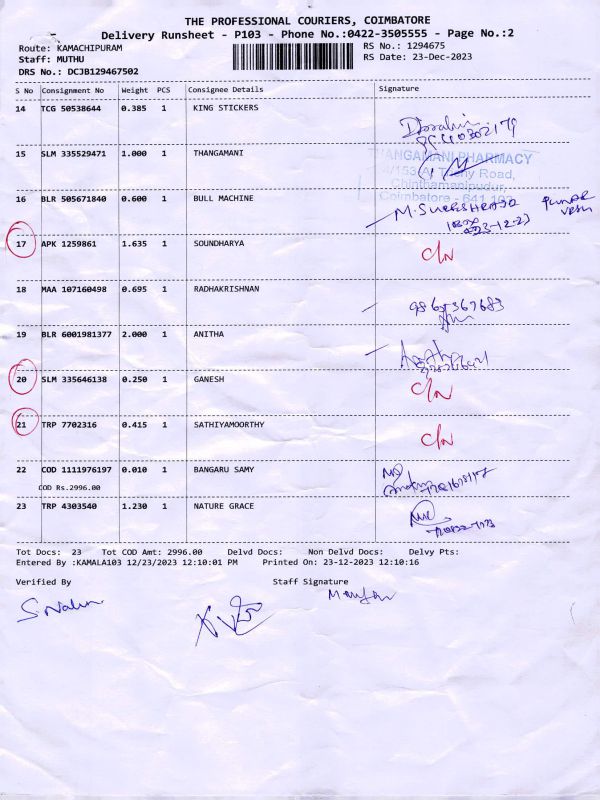 THE PROFESSIONAL COURIERS, COIMBATORE
Delivery Runsheet - P103 - Phone No.:0422-3505555 - Page No.:2
Route: KAMACHIPURAM RS No.: 1294675
Staff: MUTHU RS Date: 23-Dec-2023
DRS No.: DCJB129467502
S No Consignment No Weight PCS Consignee Details Signature
14 TCG 50538644 0.385 1 KING STICKERS
15 SLM 335529471 1.000 1 THANGAMANI
THANGAMANI PHARMACY
Road,
Chinthamanipudur,
Coimbatore - 641 103
16 BLR 505671840 0.600 1 BULL MACHINE
17 APK 1259861 1.635 1 SOUNDHARYA C/N
18 MAA 107160498 0.695 1 RADHAKRISHNAN
9865367683
19 BLR 6001981377 2.000 1 ANITHA
20 SLM 335646138 0.250 1 GANESH C/N
21 TRP 7702316 0.415 1 SATHIYAMOORTHY C/N
22 COD 1111976197 0.010 1 BANGARU SAMY
COD Rs.2996.00
23 TRP 4303540 1.230 1 NATURE GRACE
Tot Docs: 23 Tot COD Amt: 2996.00 Delvd Docs: Non Delvd Docs: Delvy Pts:
Entered By :KAMALA103 12/23/2023 12:10:01 PM Printed On: 23-12-2023 12:10:16
Verified By Staff Signature